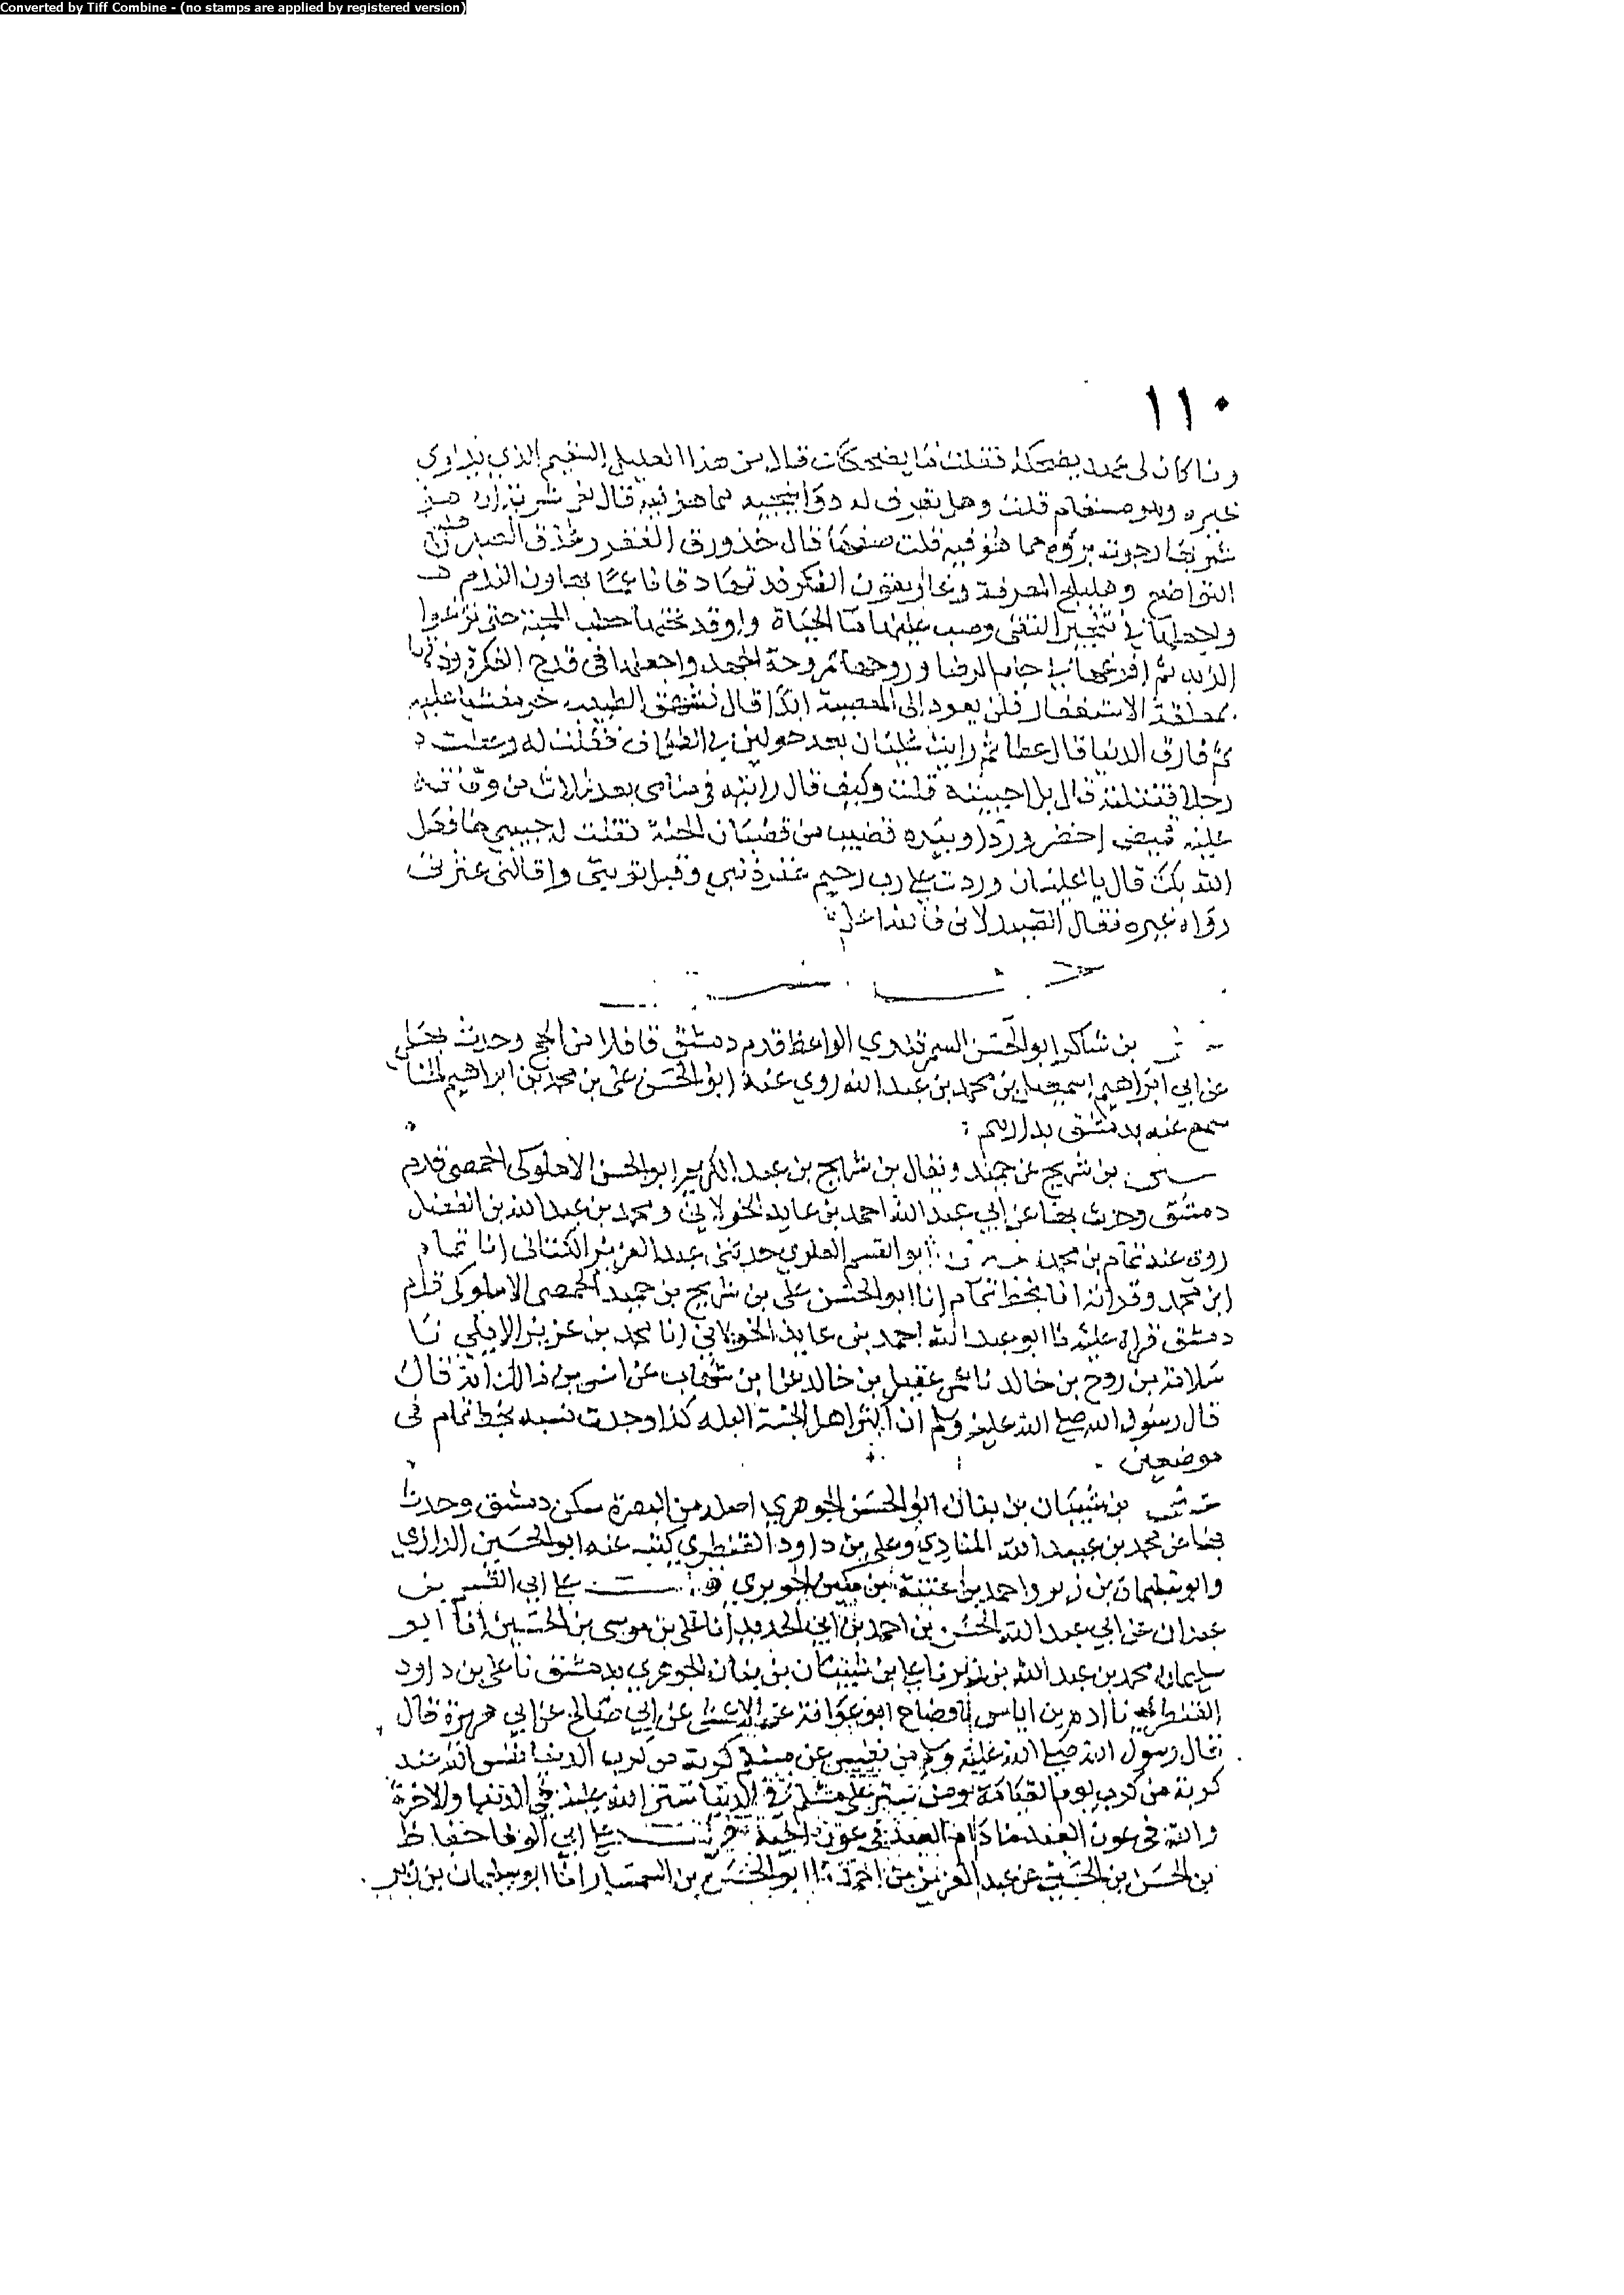 Converted by Tiff Combine - (no stamps are applied by registered version)
١١٠
وما كان لى عهد بضحكه فقلت ما يضحكك قال من هذا العليل السقيم الذي يداوي
غيره وهو مسقام قلت وهل تعرف له دوا ينجيه مما هو فيه قال نعم شربة إن
شربها رجوت برؤه مما هو فيه قلت صفها قال خذ ورق الفقر وعرق الصبر
التواضع وهليلج المعرفة وغاريقون الفكر فدقها دقا ناعما بهاون الندم
واجعلها في طنجير التقى وصب عليها ما الحياة واوقد تحتها حطب المحبة حتى ترغوا
الزبد ثم افرغها في جام الرضا وروحها بمروحة الحمد واجعلها فى قدح الفكرة وذقها
بملعقة الاستغفار فلن يعود الى المعصية ابدا قال فشهق الطبيب خر مغشيا عليه
ثم فارق الدنيا قال عطا ثم رايت عليان بعد حولين في الطواف فقلت له وعظت
رجلا فقتلته قال بل احييته قلت وكيف قال رايته في منامى بعد ثلاث من وفاته
عليه قميص اخضر وردا وبيده قضيب من قضبان الجنة فقلت له حبيبي ما فعل
الله بك قال يا عليان وردت على رب رحيم غفر ذنبي وقبل توبتي واقالنى عثرتى
رواه غيره فقال الصيدلانى فالله اعلم
بن شاكر ابو الحسن السمرقندي الواعظ قدم دمشق قافلا من الحج وحدث بها
عن ابي ابراهيم اسمعيل بن محمد بن عبد الله روي عنه ابو الحسن على بن محمد بن ابراهيم
سمع عنه بدمشق
بن شريح بن حميد ويقال بن شريح بن عبد الكريم ابو الحسن الاملوكى الحمصى قدم
دمشق وحدث بها عن ابي عبد الله احمد بن عايد الخولاني ومحمد بن عبد الله بن الفضل
روى عنه تمام بن محمد ابو القسم العلوي حدثنى عبد العزيز الكتانى انا تمام
ابن محمد وقرانه انا بخط تمام انا ابو الحسن على بن شريح بن حميد الحمصى الاملوكى قدم
دمشق قراه عليه نا ابو عبد الله احمد بن عايذ الخولاني انا محمد بن عزيز الايلي نا
سلامة بن روح بن خالد نا عمى عقيل بن خالد عن ابن شهاب عن انس بن مالك انه قال
قال رسول الله صلى الله عليه وسلم ان اكثر اهل الجنة البله كذا وجدت نسبه بخط تمام فى
موضعين
بن شيبان بن بنان ابو الحسن الجوهري اصله من البصرة سكن دمشق وحدث
بها عن محمد بن عبيد الله المنادي وعلي بن داود القنطري كتب عنه ابو الحسين الرازي
وابو سليمان بن زبر واحمد بن عتبة بن مكين الجوبري على ابي القسم بن
عبدان عن ابي عبد الله الحسن بن احمد بن ابي الحديد انا على بن موسى بن الحسين انا ابو
سليمان محمد بن عبد الله بن زبر نا على بن شيبان بن بنان الجوهري بدمشق نا على بن داود
القنطري نا ادم بن اياس نا وضاح ابو عوانة عن الاعمش عن ابي صالح عن ابي هريرة قال
قال رسول الله صلى الله عليه وسلم من نفس عن مسلم كربة من كرب الدنيا نفس الله عنه
كربة من كرب يوم القيامة ومن ستر على مسلم في الدنيا ستر الله عليه في الدنيا والاخرة
والله فى عون العبد ما دام العبد في عون اخيه على ابي الوفا حفاظ
بن الحسن بن الحسين عن عبد العزيز بن احمد انا ابو الحسن بن السمسار انا ابو سليمان بن زبر